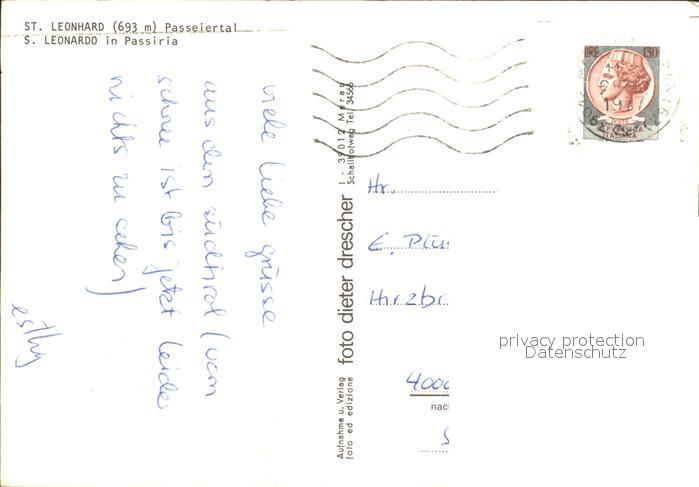 ST. LEONHARD (693 m) Passeiertal
S. LEONARDO in Passiria
viele liebe grüsse
aus dem südtirol (vom
schnee ist bis jetzt leider
nichts zu sehen)
esthy
Aufnahme u. Verlag
foto ed edizione
foto dieter drescher
I - 39012 Meran
Schallhofweg Tel. 34566
LIRE 130
POSTE
REPUBBLICA
ITALIANA
Hr.
E. Plü
Hirzbr
4000
nac
privacy protection
Datenschutz